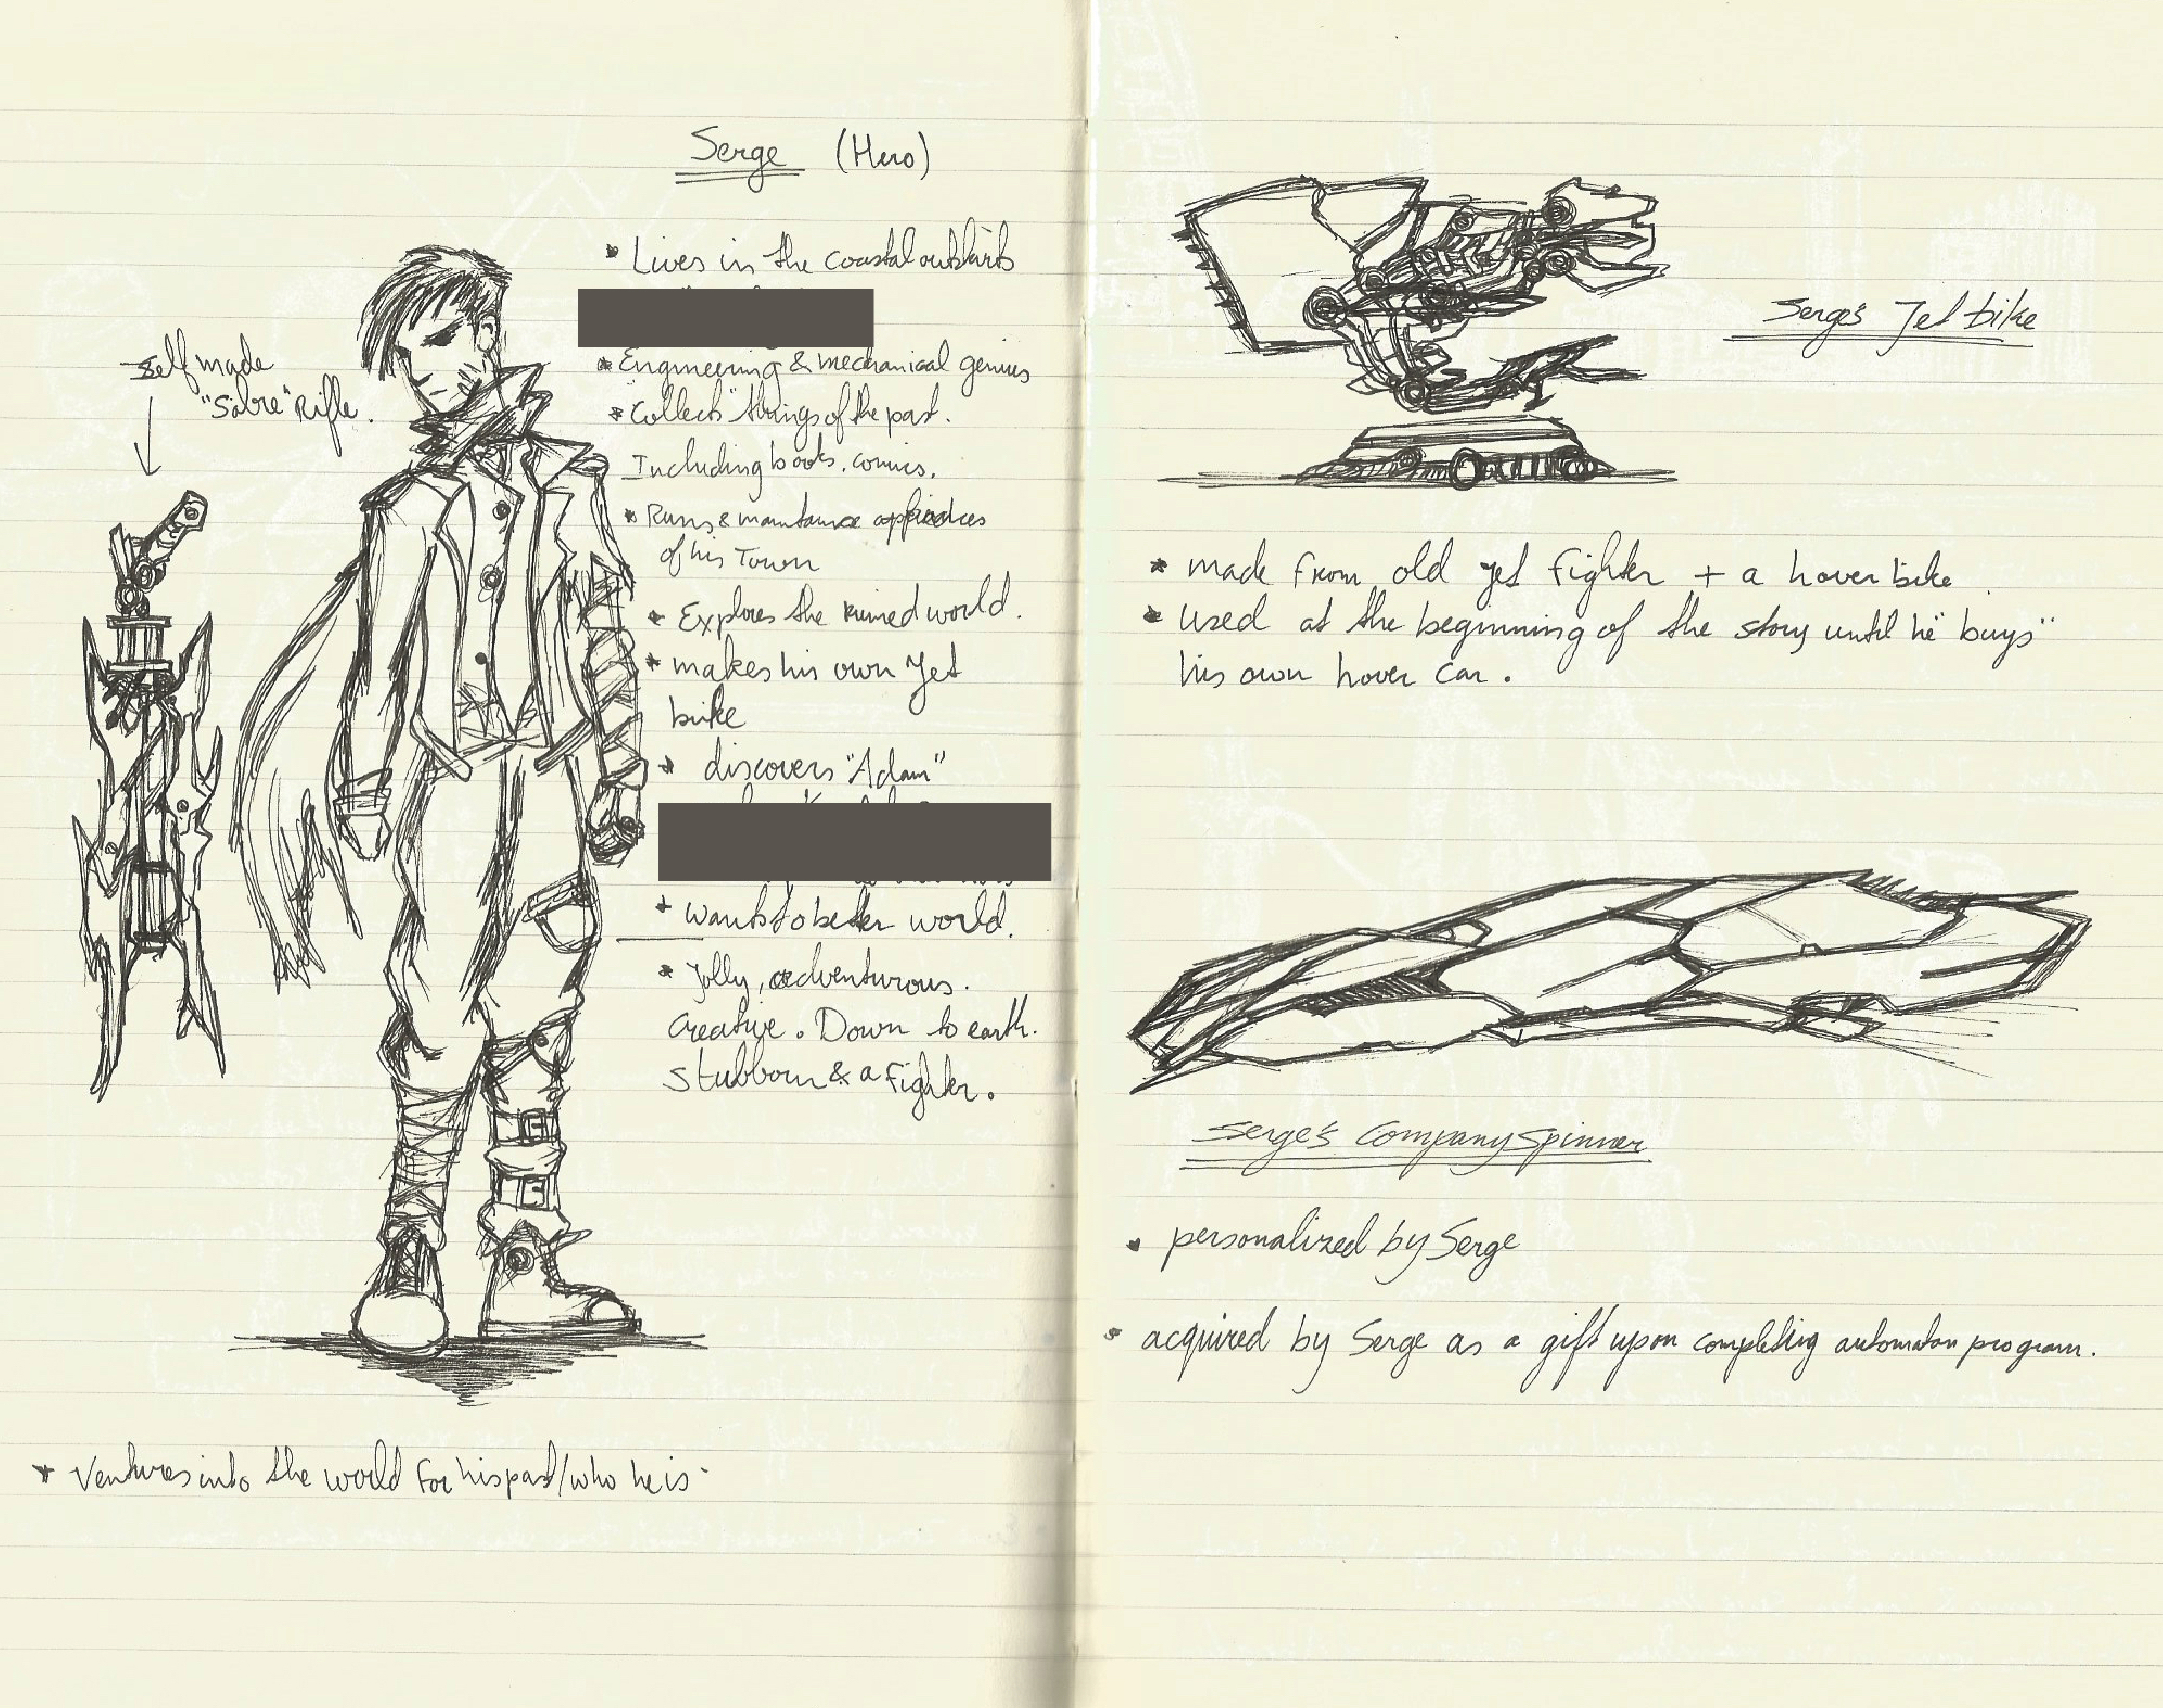 Serge (Hero)
* Lives in the coastal outskirts
* Engineering & mechanical genius
* "Collects" things of the past.
Including books, comics.
* Runs & maintance
of his Town
* Explores the ruined world.
* makes his own Jet
bike
* discovers "Adam"
* wants to better world.
* Jolly, adventurous.
Creative. Down to earth.
Stubborn & a Fighter.
self made
"Sabre" Rifle.
* Ventures into the world for his past/who he is.
Serge's Jet bike
* made from old jet fighter + a hover bike.
* Used at the beginning of the story until he "buys"
his own hover car.
Serge's Company Spinner
* personalized by Serge
* acquired by Serge as a gift upon completing automaton program.